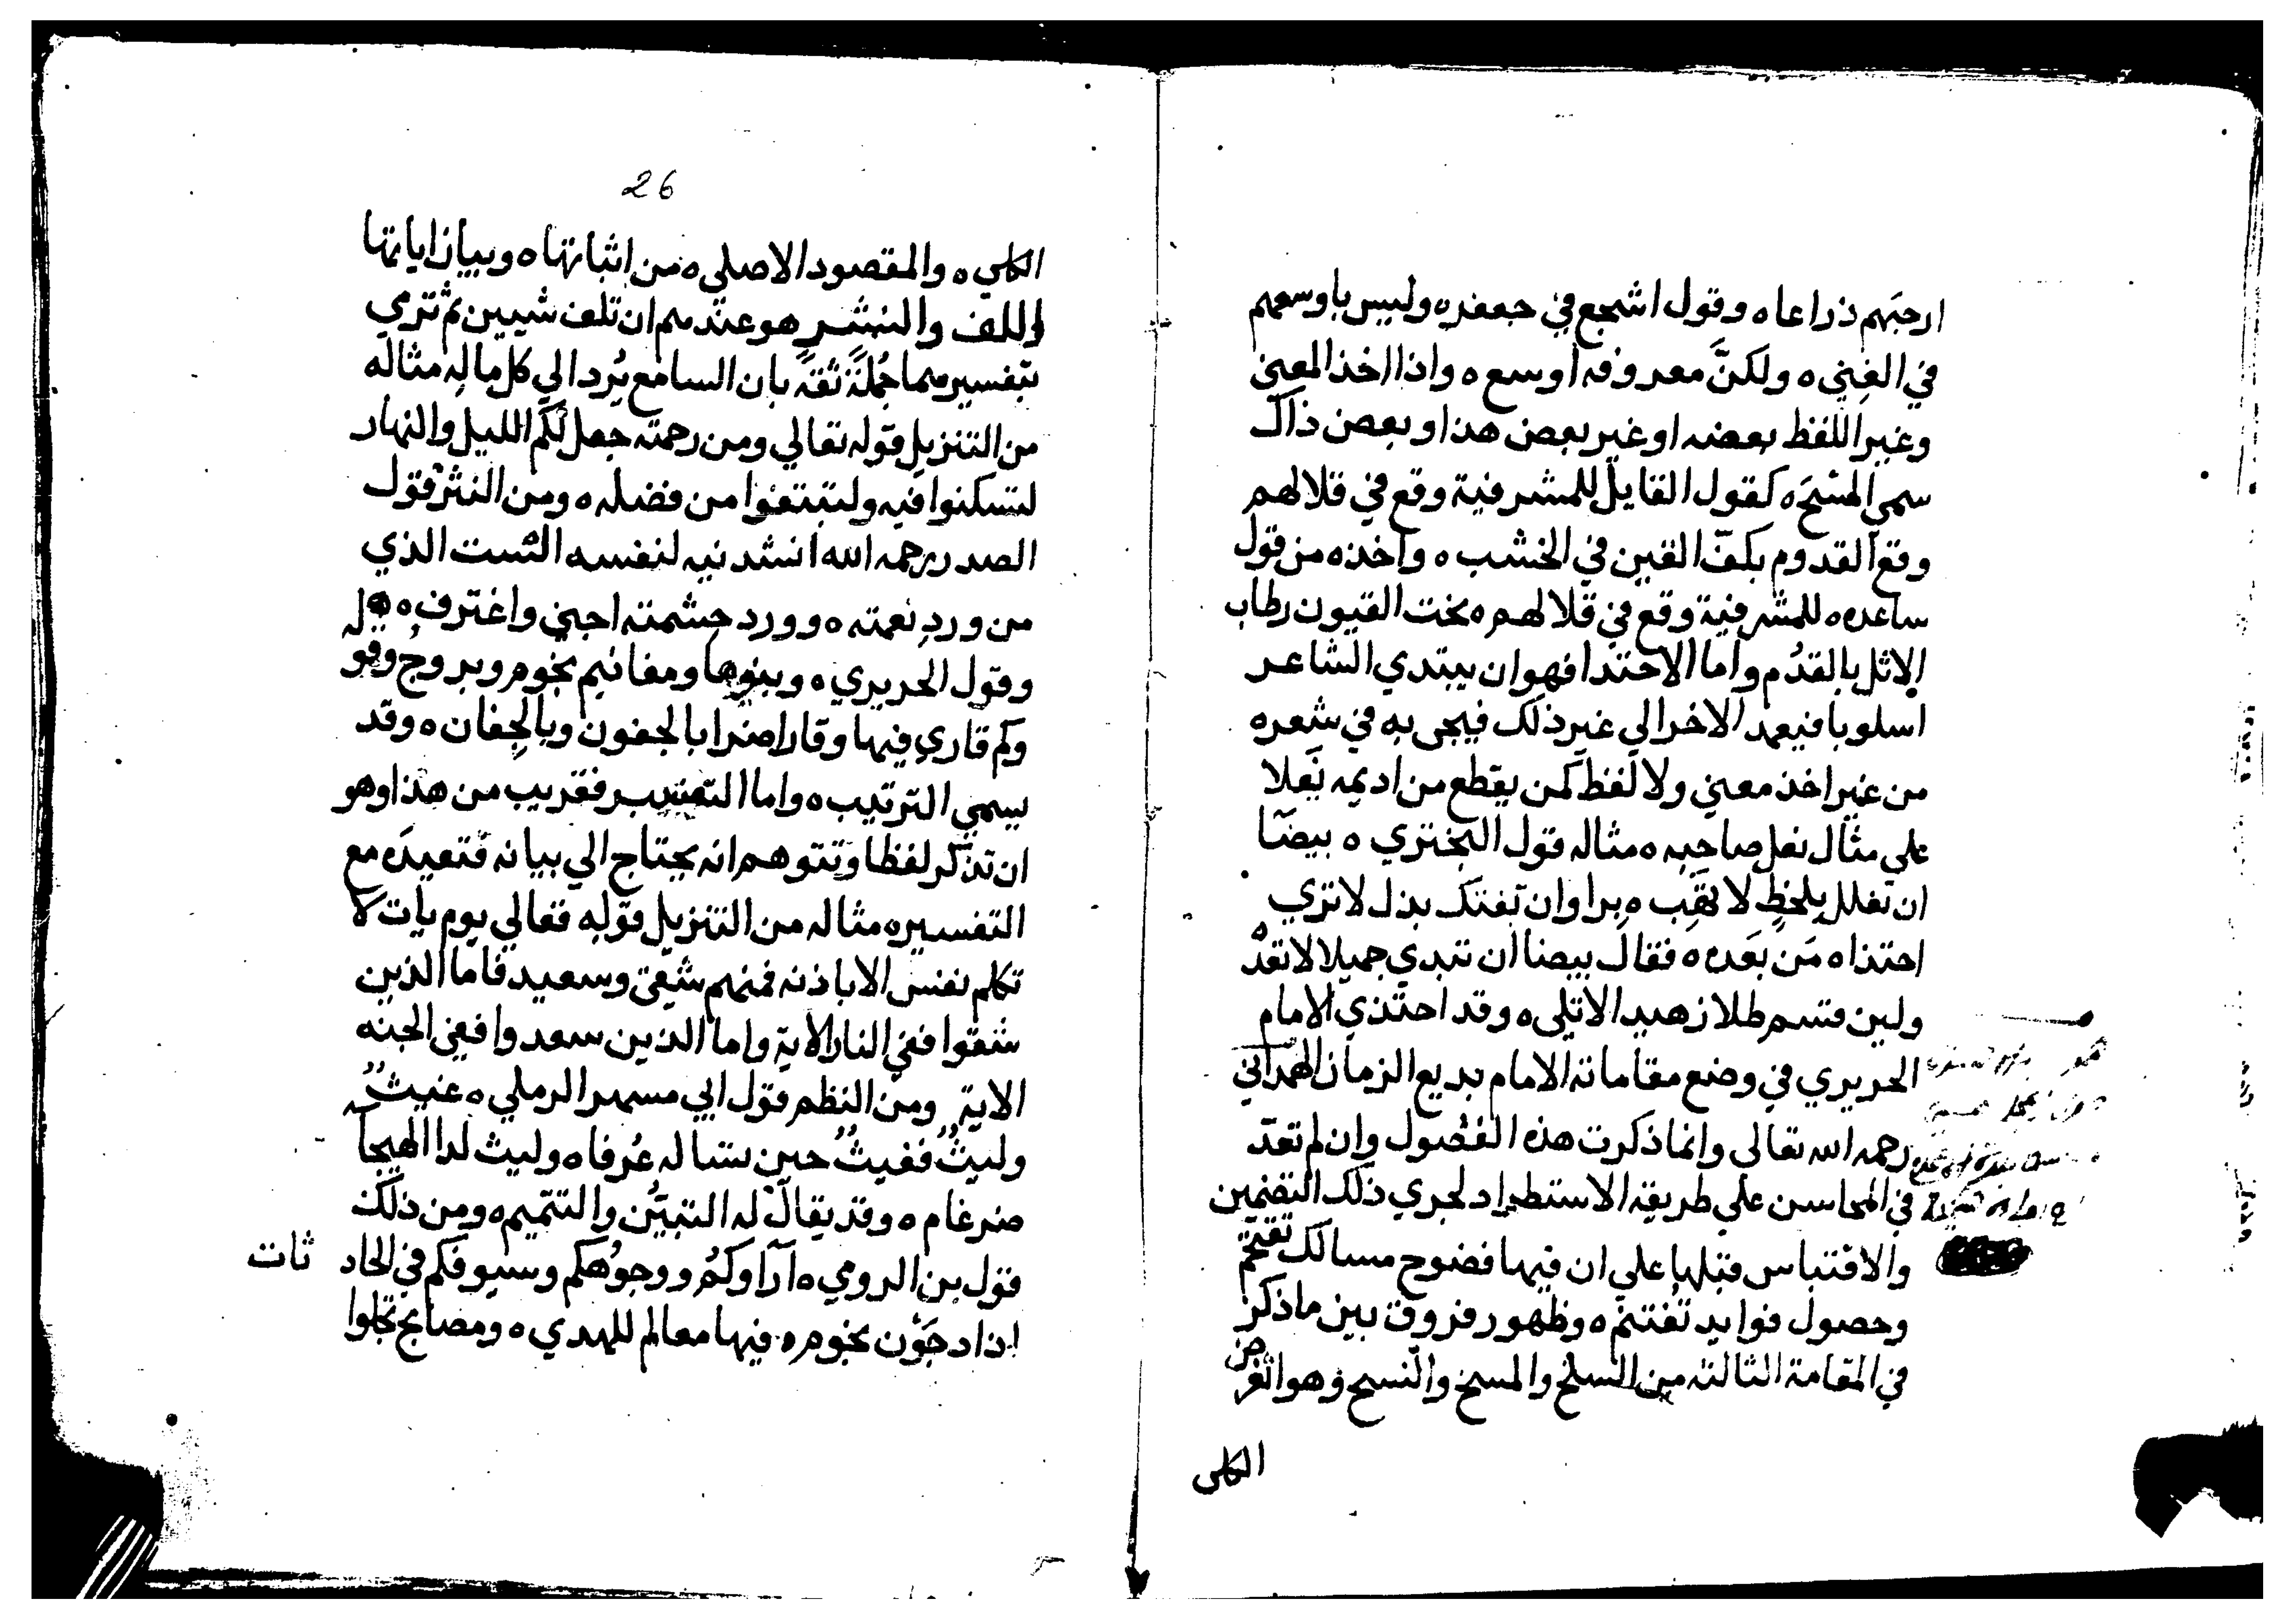 ارحبَهم ذراعا ه وقول اشجع في جعفره وليس باوسعهم
في الغِني ه ولكنَّ معروفه اوسع ه واذا اخذ المعني
وغير اللفظ بعضه او غير بعض هذا وبعض ذاك
سمي المسْخَ ه كقول القايل للمشرفية وقع في قلالهم
وقع القدوم بكفّ القين في الخشب ه واخذه من قول
ساعده للمشرفية وقع في قلالهم ه تحت القيون رطاب
الاثل بالقدُم واما الاحتذا فهو ان يبتدي الشاعر
اسلوبا فيعمد الاخر الي غير ذلك فيجي به في شعره
من غير اخذ معني ولا لفظ كمن يقطع من اديمه نَعلا
علي مثال نعل صاحبه ه مثاله قول البختري ه بيضا
ان تعلل بلحظٍ لا تهَب ه برا وان تفتك بذل لا تري
احتذاه مَن بَعده ه فقال بيضا ان تبدي جميلا لا تعدْ
ولين قسم طلا زهيد الاتلي ه وقد احتذي الامام
الحريري في وضع مقاماته الامام بديع الزمان الهمداني
رحمه الله تعالي وانما ذكرت هذه الفصول وان لم تعدّ
في المحاسن علي طريقة الاستطراد لجري ذلك التضمين
والاقتباس قبلها علي ان فيها فضوح مسالك تقتحم
وحصول فوايد تُغتنم ه وظهور فروق بين ما ذكر
في المقامة الثالثة من السلخ والمسخ والنسخ وهو الغرض
الكلي
26
الكلي ه والمقصود الاصلي ه من اثباتها ه وبيان اياتها
واللف والنشر هو عندهم ان تلف شيين ثم تري
بتفسيرهما جُملةً ثقةً بان السامع يُرد الي كل ما له مثاله
من التنزيل قوله تعالي ومن رحمته جعل لكم الليل والنهار
لتسكنوا فيه ولتبتغوا من فضله ه ومن النثر قول
الصدر رحمه الله انشدنيه لنفسه الست الذي
من وردِ نعمته ه وورد حشمته اجني واغترف ه
وقول الحريري ه وبنوها ومغانيم نجوم وبروج وقو
وكم قاري فيها وقار اضرا بالجفون وبالجِفان ه وقد
يسمي الترتيب ه واما التفسير فقريب من هذا وهو
ان تذكر لفظا وتتوهم انه يحتاج الي بيانه فتعيده مع
التفسير ه مثاله من التنزيل قوله تعالي يوم يات لا
تكلم نفس الا باذنه فمنهم شقي وسعيد فاما الذين
شقوا ففي النار الاية واما الذين سعدوا ففي الجنه
الاية ومن النظم قول ابي مسهر الرملي ه غيثٌ
وليثٌ فغيثٌ حين تساله عُرفا ه وليث لدا الهيجا
ضرغام ه وقد يقال له التبيّن والتتميم ه ومن ذلك
قول بن الرومي ه آراوكمُ ووجوُهكم وسيوفكم في الحاد ثات
اذا دجَوْن نجوم ه فيها معالم للهدي ه ومصابح تجلوا